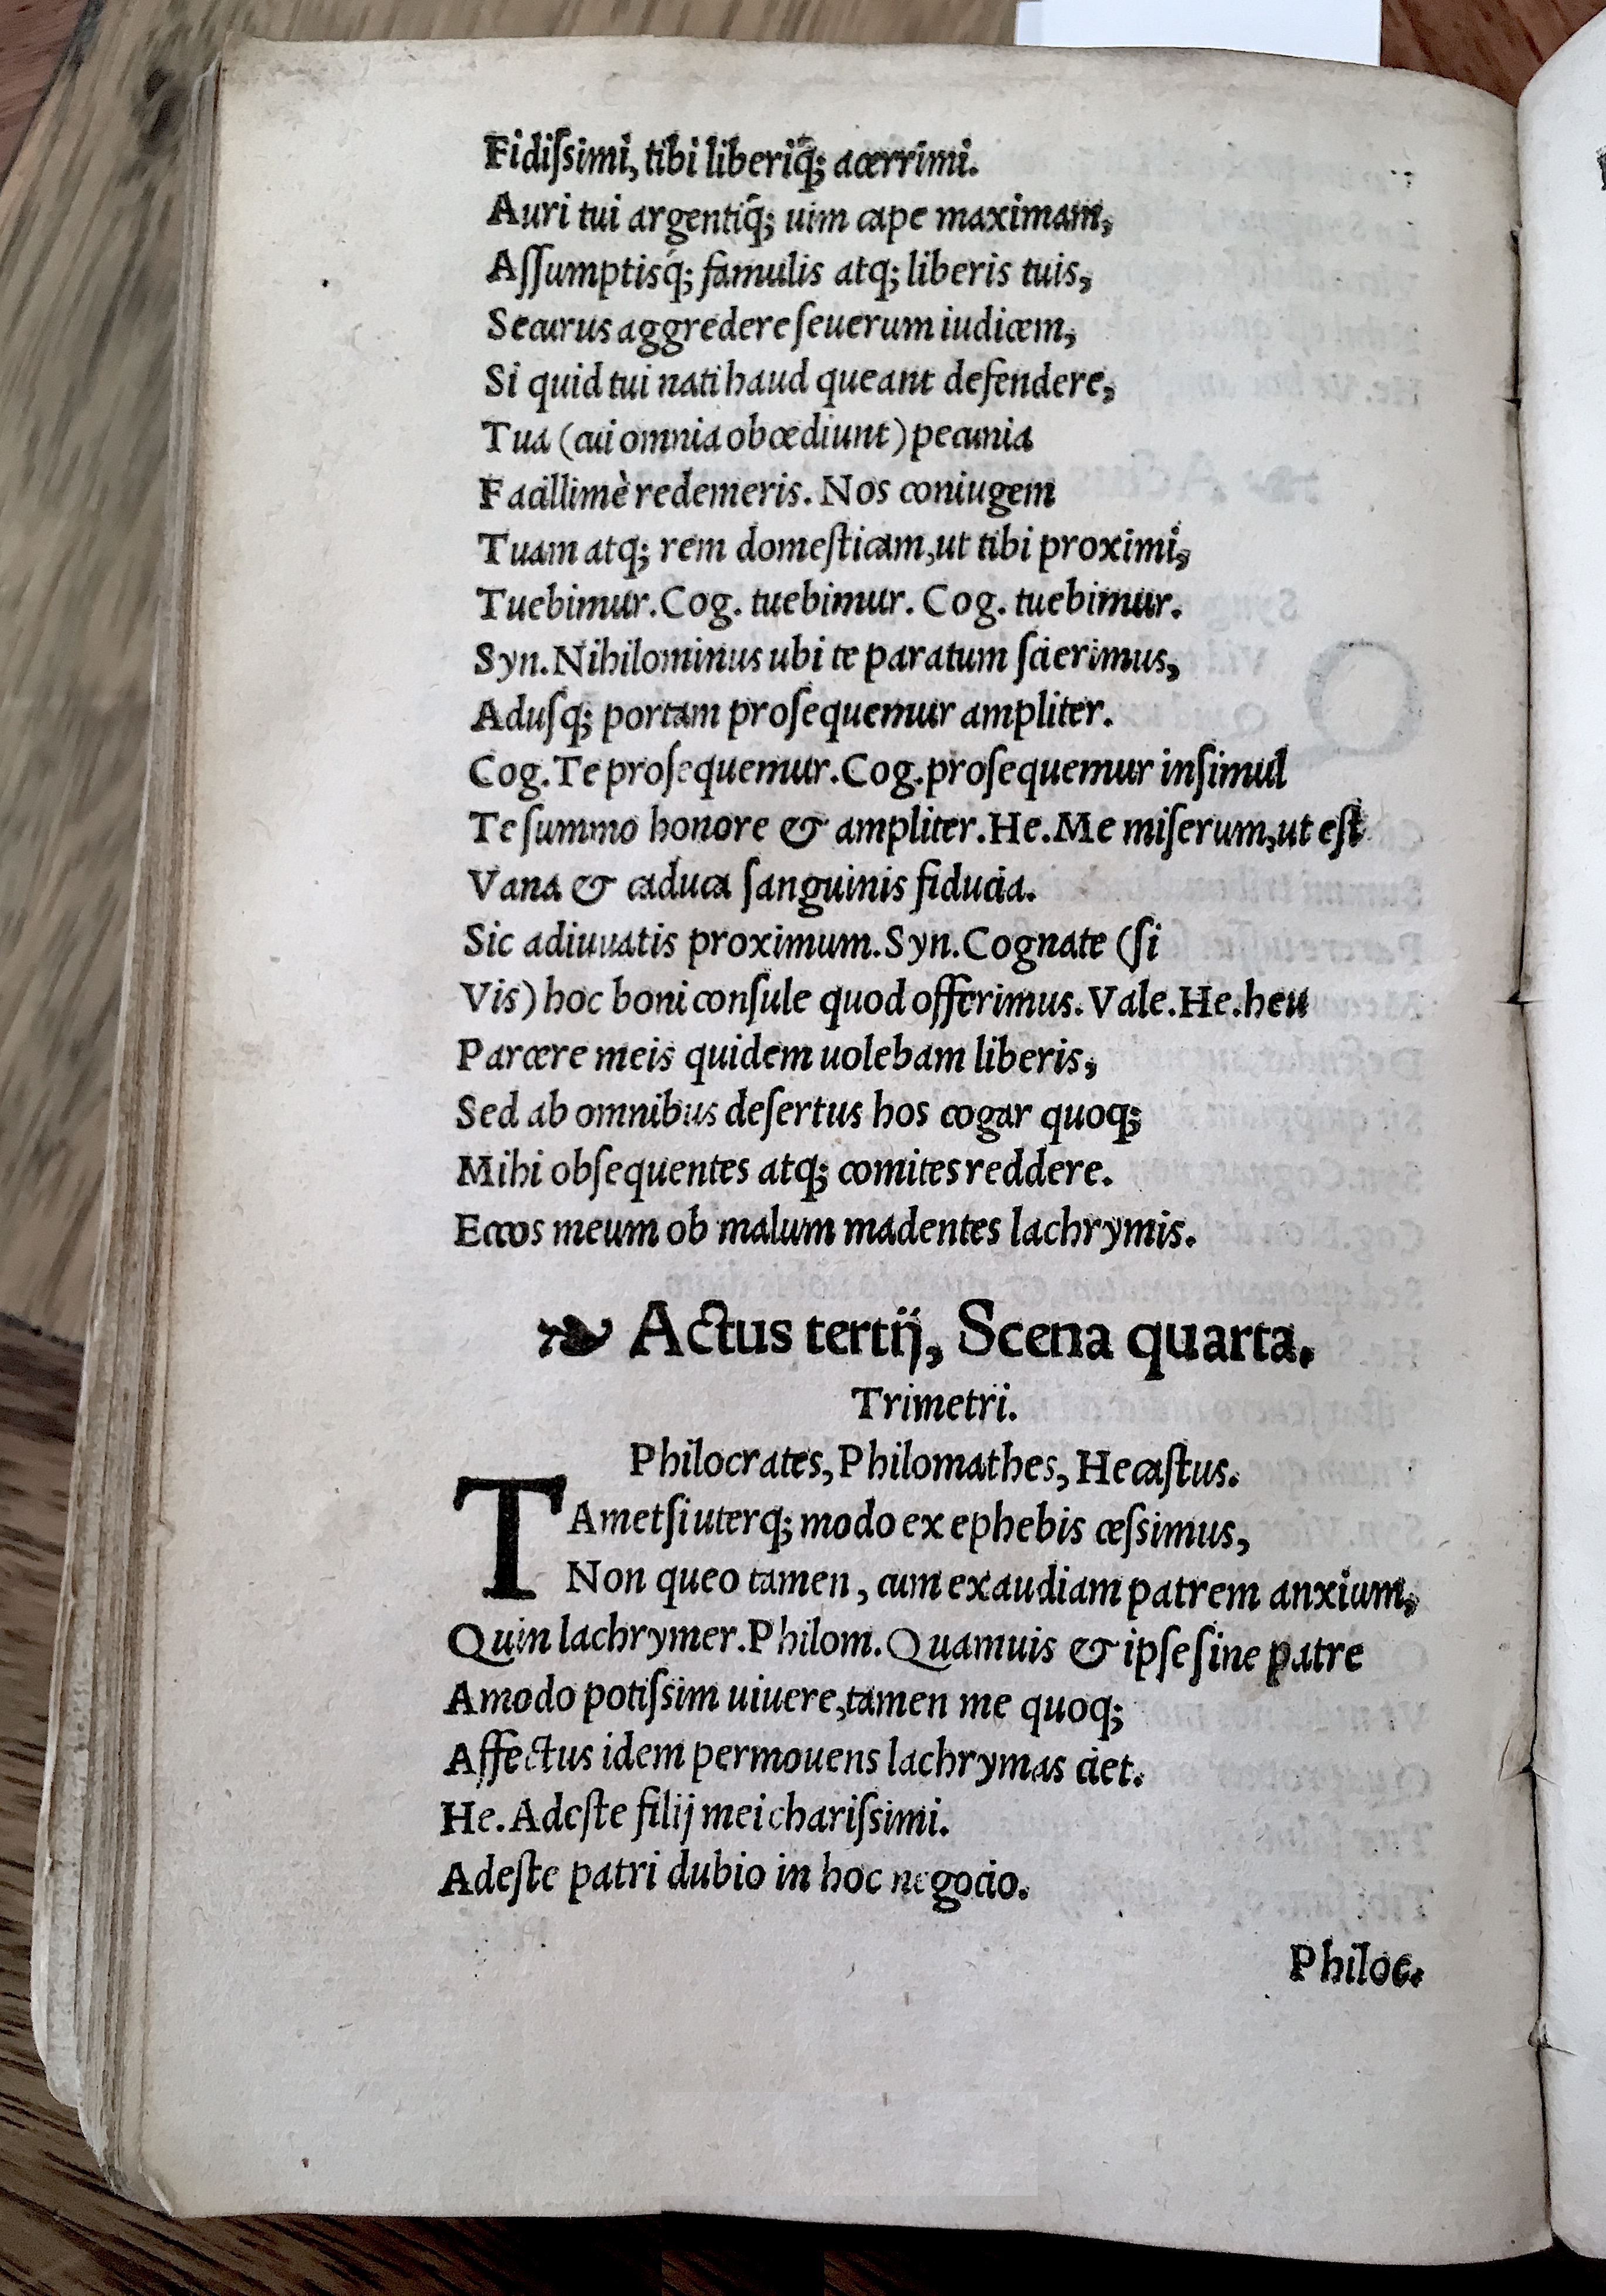 Fidiſsimi, tibi liberiq́; acerrimi.
Auri tui argentiq́; uim cape maximam,
Aſſumptisq́; famulis atq; liberis tuis,
Securus aggredere ſeuerum iudicem,
Si quid tui nati haud queant defendere,
Tua (cui omnia obœdiunt) pecunia
Facillimè redemeris. Nos coniugem
Tuam atq; rem domeſticam, ut tibi proximi,
Tuebimur. Cog. tuebimur. Cog. tuebimur.
Syn. Nihilominus ubi te paratum ſcierimus,
Aduſq; portam proſequemur ampliter.
Cog. Te proſequemur. Cog. proſequemur inſimul
Te ſummo honore & ampliter. He. Me miſerum, ut eſt
Vana & caduca ſanguinis fiducia.
Sic adiuuatis proximum. Syn. Cognate (ſi
Vis) hoc boni conſule quod offerimus. Vale. He. heu
Parcere meis quidem uolebam liberis,
Sed ab omnibus deſertus hos cogar quoq;
Mihi obſequentes atq; comites reddere.
Eccos meum ob malum madentes lachrymis.
❧ Actus tertij, Scena quarta.
Trimetri.
Philocrates, Philomathes, Hecaſtus.
TAmetſi uterq; modo ex ephebis ceſsimus,
Non queo tamen, cum exaudiam patrem anxium,
Quin lachrymer. Philom. Quamuis & ipſe ſine patre
Amodo potiſsim uiuere, tamen me quoq;
Affectus idem permouens lachrymas ciet.
He. Adeſte filij mei chariſsimi.
Adeſte patri dubio in hoc negocio.
Philoc.